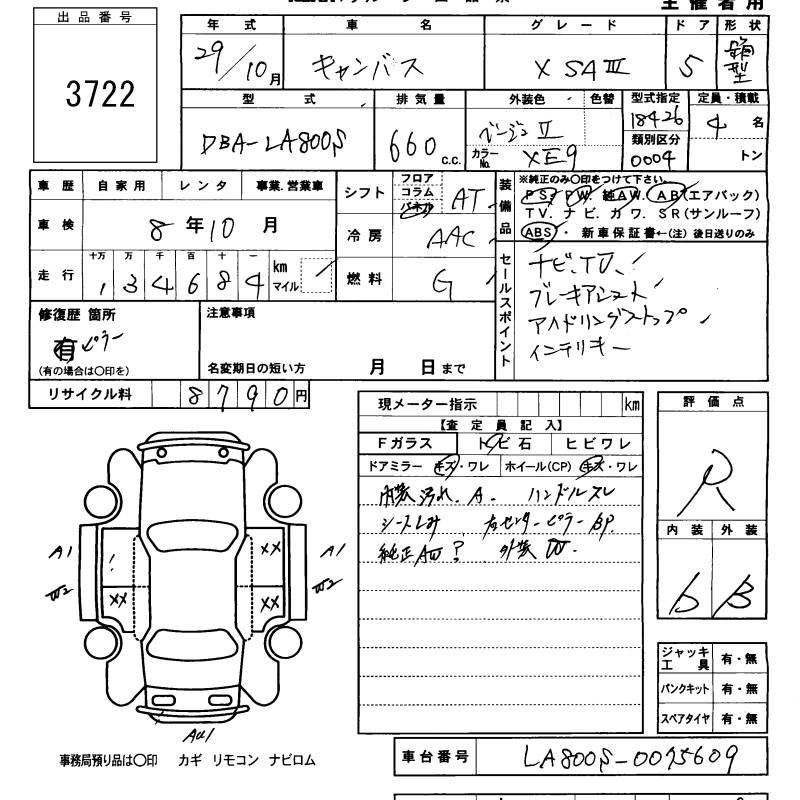 主催者用
出品番号
3722
年式 車名 グレード ドア 形状
29/10月 キャンバス X SAIII 5 箱型
型式 排気量 外装色 色替 型式指定 定員・積載
DBA-LA800S 660 C.C. ベージュII 18426 4名
カラーNo. XE9 類別区分 0004 トン
車歴 自家用 レンタ 事業.営業車
車検 8年10月
走行 十万 万 千 百 十 一
1 3 4 6 8 4 km マイル
シフト フロア コラム パネル AT
冷房 AAC
燃料 G
装備品 ※純正のみ〇印をつけて下さい。
PS. PW. 純AW. AB(エアバック)
TV. ナビ. カワ. SR(サンルーフ)
ABS・ 新車保証書←(注) 後日送りのみ
セールスポイント ナビ、TV、
ブレーキアシスト
アイドリングストップ
インテリキー
修復歴 箇所
有 ピラー
(有の場合は〇印を)
注意事項
名変期日の短い方 月 日まで
リサイクル料 8790円
現メーター指示 km
【査定員記入】
Fガラス トビ石 ヒビワレ
ドアミラー キズ・ワレ ホイール(CP) キズ・ワレ
内装汚れ. A. ハンドルスレ
シートしみ 右センターピラーBP.
純正AW? 外装W.
評価点
R
内装 外装
b B
A1 XX A1
W2 XX XX W2
AU1
ジャッキ工具 有・無
パンクキット 有・無
スペアタイヤ 有・無
事務局預り品は〇印 カギ リモコン ナビロム
車台番号 LA800S-0075609